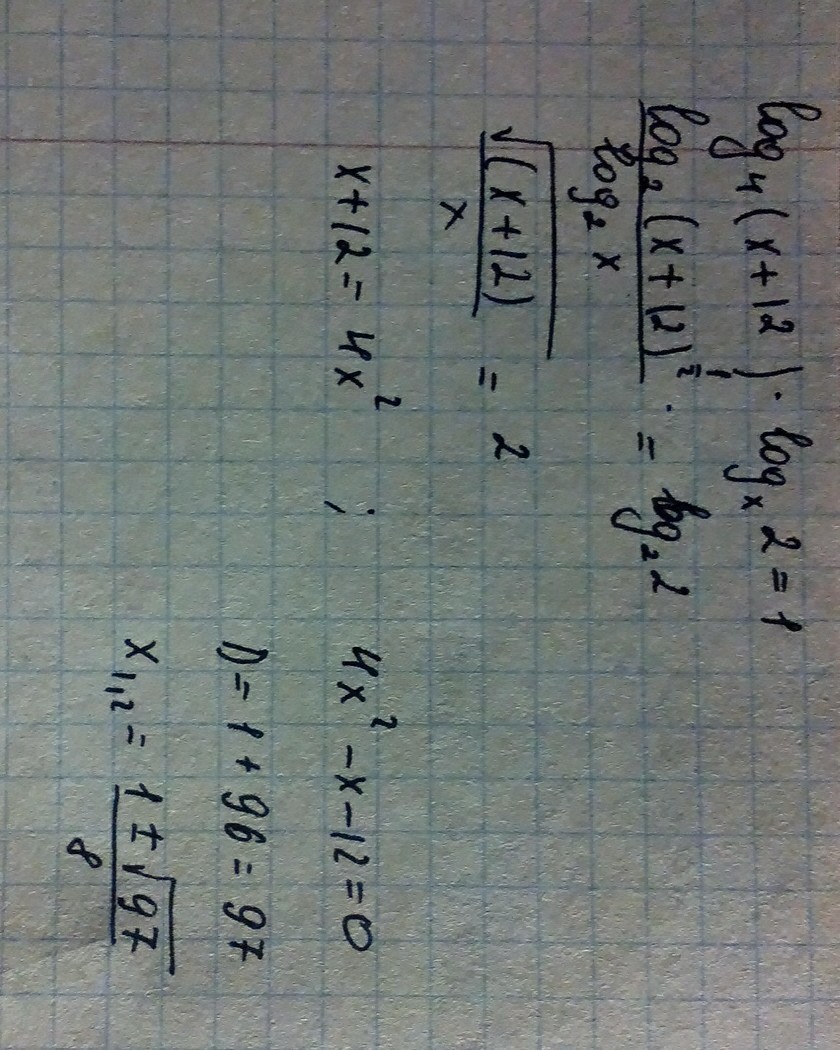 log₄(x+12)·logₓ2=1
log₂(x+12)^½ / log₂x · = log₂2
√(x+12) / x = 2
x+12=4x² ; 4x²-x-12=0
D=1+96=97
x₁,₂ = 1±√97 / 8